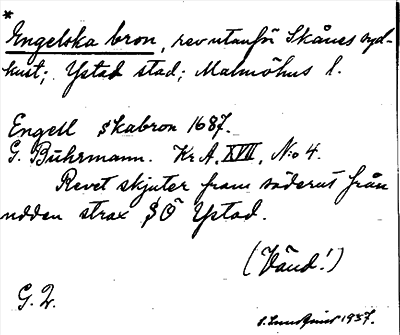 *
Engelska bron, rev utanför Skånes syd-
kust; Ystad stad; Malmöhus l.
Engell skabron 1687.
G. Buhrmann. Kr A, XVII, N:o 4.
Revet skjuter fram söderut från
udden strax SÖ Ystad.
(Vänd!)
G. 2.
S. Lundqvist 1937.